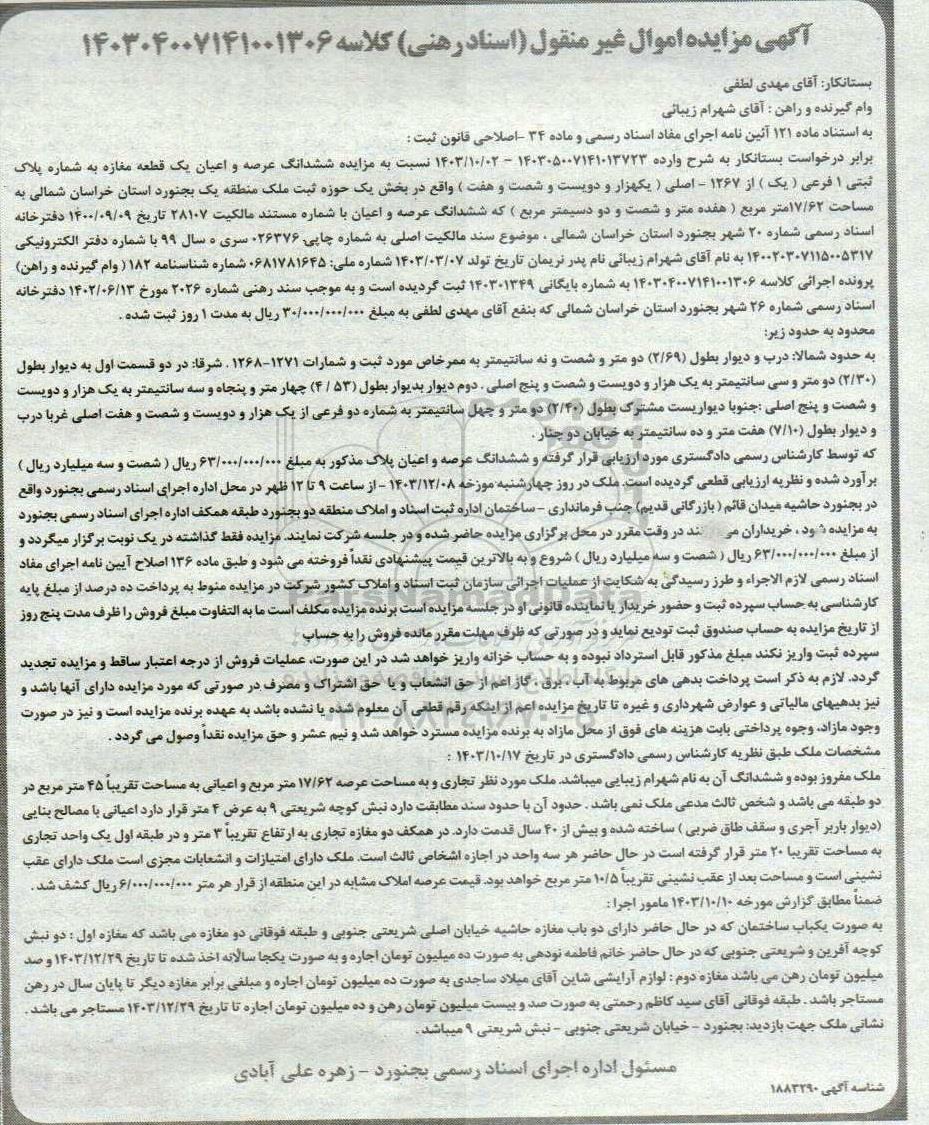 آگهی مزایده اموال غیر منقول (اسناد رهنی) کلاسه ۱۴۰۳۰۴۰۰۷۱۴۱۰۰۱۳۰۶
بستانکار: آقای مهدی لطفی
وام گیرنده و راهن : آقای شهرام زیبائی
به استناد ماده ۱۲۱ آئین نامه اجرای مفاد اسناد رسمی و ماده ۳۴ -اصلاحی قانون ثبت :
برابر درخواست بستانکار به شرح وارده ۱۴۰۳۰۵۰۰۷۱۴۱۰۱۳۷۲۳ – ۱۴۰۳/۱۰/۰۲ نسبت به مزایده ششدانگ عرصه و اعیان یک قطعه مغازه به شماره پلاک
ثبتی ۱ فرعی ( یک ) از ۱۲۶۷ - اصلی ( یکهزار و دویست و شصت و هفت ) واقع در بخش یک حوزه ثبت ملک منطقه یک بجنورد استان خراسان شمالی به
مساحت ۱۷/۶۲متر مربع ( هفده متر و شصت و دو دسیمتر مربع ) که ششدانگ عرصه و اعیان با شماره مستند مالکیت ۲۸۱۰۷ تاریخ ۱۴۰۰/۰۹/۰۹ دفترخانه
اسناد رسمی شماره ۲۰ شهر بجنورد استان خراسان شمالی ، موضوع سند مالکیت اصلی به شماره چاپی ۰۲۶۳۷۶ سری ه سال ۹۹ با شماره دفتر الکترونیکی
۱۴۰۰۲۰۳۰۷۱۱۵۰۰۵۳۱۷ به نام آقای شهرام زیبائی نام پدر نریمان تاریخ تولد ۱۴۰۳/۰۳/۰۷ شماره ملی: ۰۶۸۱۷۸۱۶۴۵ شماره شناسنامه ۱۸۲ ( وام گیرنده و راهن)
پرونده اجرائی کلاسه ۱۴۰۳۰۴۰۰۷۱۴۱۰۰۱۳۰۶ به شماره بایگانی ۱۴۰۳۰۱۳۴۹ ثبت گردیده است و به موجب سند رهنی شماره ۲۰۲۶ مورخ ۱۴۰۲/۰۶/۱۳ دفترخانه
اسناد رسمی شماره ۲۶ شهر بجنورد استان خراسان شمالی که بنفع آقای مهدی لطفی به مبلغ ۳۰/۰۰۰/۰۰۰/۰۰۰ ریال به مدت ۱ روز ثبت شده .
محدود به حدود زیر:
به حدود شمالا: درب و دیوار بطول (۲/۶۹) دو متر و شصت و نه سانتیمتر به ممرخاص مورد ثبت و شمارات ۱۲۷۱-۱۲۶۸ . شرقا: در دو قسمت اول به دیوار بطول
(۲/۳۰) دو متر و سی سانتیمتر به یک هزار و دویست و شصت و پنج اصلی . دوم دیوار بدیوار بطول (۵۳ / ۴) چهار متر و پنجاه و سه سانتیمتر به یک هزار و دویست
و شصت و پنج اصلی :جنوبا دیواریست مشترک بطول (۲/۴۰) دو متر و چهل سانتیمتر به شماره دو فرعی از یک هزار و دویست و شصت و هفت اصلی غربا درب
و دیوار بطول (۷/۱۰) هفت متر و ده سانتیمتر به خیابان دو چنار .
که توسط کارشناس رسمی دادگستری مورد ارزیابی قرار گرفته و ششدانگ عرصه و اعیان پلاک مذکور به مبلغ ۶۳/۰۰۰/۰۰۰/۰۰۰ ریال ( شصت و سه میلیارد ریال )
برآورد شده و نظریه ارزیابی قطعی گردیده است. ملک در روز چهارشنبه مورخه ۱۴۰۳/۱۲/۰۸ - از ساعت ۹ تا ۱۲ ظهر در محل اداره اجرای اسناد رسمی بجنورد واقع
در بجنورد حاشیه میدان قائم ( بازرگانی قدیم) جنب فرمانداری – ساختمان اداره ثبت اسناد و املاک منطقه دو بجنورد طبقه همکف اداره اجرای اسناد رسمی بجنورد
به مزایده ، خریداران در وقت مقرر در محل برگزاری مزایده حاضر شده و در جلسه شرکت نمایند. مزایده فقط در یک نوبت برگزار میگردد و
از مبلغ ۶۳/۰۰۰/۰۰۰/۰۰۰ ریال ( شصت و سه میلیارد ریال ) شروع و به بالاترین قیمت پیشنهادی نقداً فروخته می شود و طبق ماده ۱۳۶ اصلاح آیین نامه اجرای مفاد
اسناد رسمی لازم الاجراء و طرز رسیدگی به شکایت از عملیات اجرائی سازمان ثبت اسناد و املاک کشور شرکت در مزایده منوط به پرداخت ده درصد از مبلغ پایه
کارشناسی به حساب سپرده ثبت و حضور خریدار یا نماینده قانونی او در جلسه مزایده است برنده مزایده مکلف است ما به التفاوت مبلغ فروش را ظرف مدت پنج روز
از تاریخ مزایده به حساب صندوق ثبت تودیع نماید و در صورتی که ظرف مهلت مقرر مانده فروش را به حساب
سپرده ثبت واریز نکند مبلغ مذکور قابل استرداد نبوده و به حساب خزانه واریز خواهد شد در این صورت، عملیات فروش از درجه اعتبار ساقط و مزایده تجدید
گردد. لازم به ذکر است پرداخت بدهی های مربوط به آب ، برق ، گاز اعم از حق انشعاب و یا حق اشتراک و مصرف در صورتی که مورد مزایده دارای آنها باشد و
نیز بدهیهای مالیاتی و عوارض شهرداری و غیره تا تاریخ مزایده اعم از اینکه رقم قطعی آن معلوم شده یا نشده باشد به عهده برنده مزایده است و نیز در صورت
وجود مازاد، وجوه پرداختی بابت هزینه های فوق از محل مازاد به برنده مزایده مسترد خواهد شد و نیم عشر و حق مزایده نقداً وصول می گردد .
مشخصات ملک طبق نظریه کارشناس رسمی دادگستری در تاریخ ۱۴۰۳/۱۰/۱۷ :
ملک مفروز بوده و ششدانگ آن به نام شهرام زیبایی میباشد. ملک مورد نظر تجاری و به مساحت عرصه ۱۷/۶۲ متر مربع و اعیانی به مساحت تقریباً ۴۵ متر مربع در
دو طبقه می باشد و شخص ثالث مدعی ملک نمی باشد . حدود آن با حدود سند مطابقت دارد نبش کوچه شریعتی ۹ به عرض ۴ متر قرار دارد اعیانی با مصالح بنایی
(دیوار باربر آجری و سقف طاق ضربی ) ساخته شده و بیش از ۴۰ سال قدمت دارد. در همکف دو مغازه تجاری به ارتفاع تقریباً ۳ متر و در طبقه اول یک واحد تجاری
به مساحت تقریبا ۲۰ متر قرار گرفته است در حال حاضر هر سه واحد در اجازه اشخاص ثالث است. ملک دارای امتیازات و انشعابات مجزی است ملک دارای عقب
نشینی است و مساحت بعد از عقب نشینی تقریباً ۱۰/۵ متر مربع خواهد بود. قیمت عرصه املاک مشابه در این منطقه از قرار هر متر ۶/۰۰۰/۰۰۰/۰۰۰ ریال کشف شد .
ضمناً مطابق گزارش مورخه ۱۴۰۳/۱۰/۱۰ مامور اجرا :
به صورت یکباب ساختمان که در حال حاضر دارای دو باب مغازه حاشیه خیابان اصلی شریعتی جنوبی و طبقه فوقانی دو مغازه می باشد که مغازه اول : دو نبش
کوچه آفرین و شریعتی جنوبی که در حال حاضر خانم فاطمه نودهی به صورت ده میلیون تومان اجاره و به صورت یکجا سالانه اخذ شده تا تاریخ ۱۴۰۳/۱۲/۲۹ و صد
میلیون تومان رهن می باشد مغازه دوم : لوازم آرایشی شاین آقای میلاد ساجدی به صورت ده میلیون تومان اجاره و مبلغی برابر مغازه دیگر تا پایان سال در رهن
مستاجر باشد . طبقه فوقانی آقای سید کاظم رحمتی به صورت صد و بیست میلیون تومان رهن و ده میلیون تومان اجازه تا تاریخ ۱۴۰۳/۱۲/۲۹ مستاجر می باشد .
نشانی ملک جهت بازدید: بجنورد – خیابان شریعتی جنوبی – نبش شریعتی ۹ میباشد .
مسئول اداره اجرای اسناد رسمی بجنورد – زهره علی آبادی
شناسه آگهی ۱۸۸۳۲۹۰